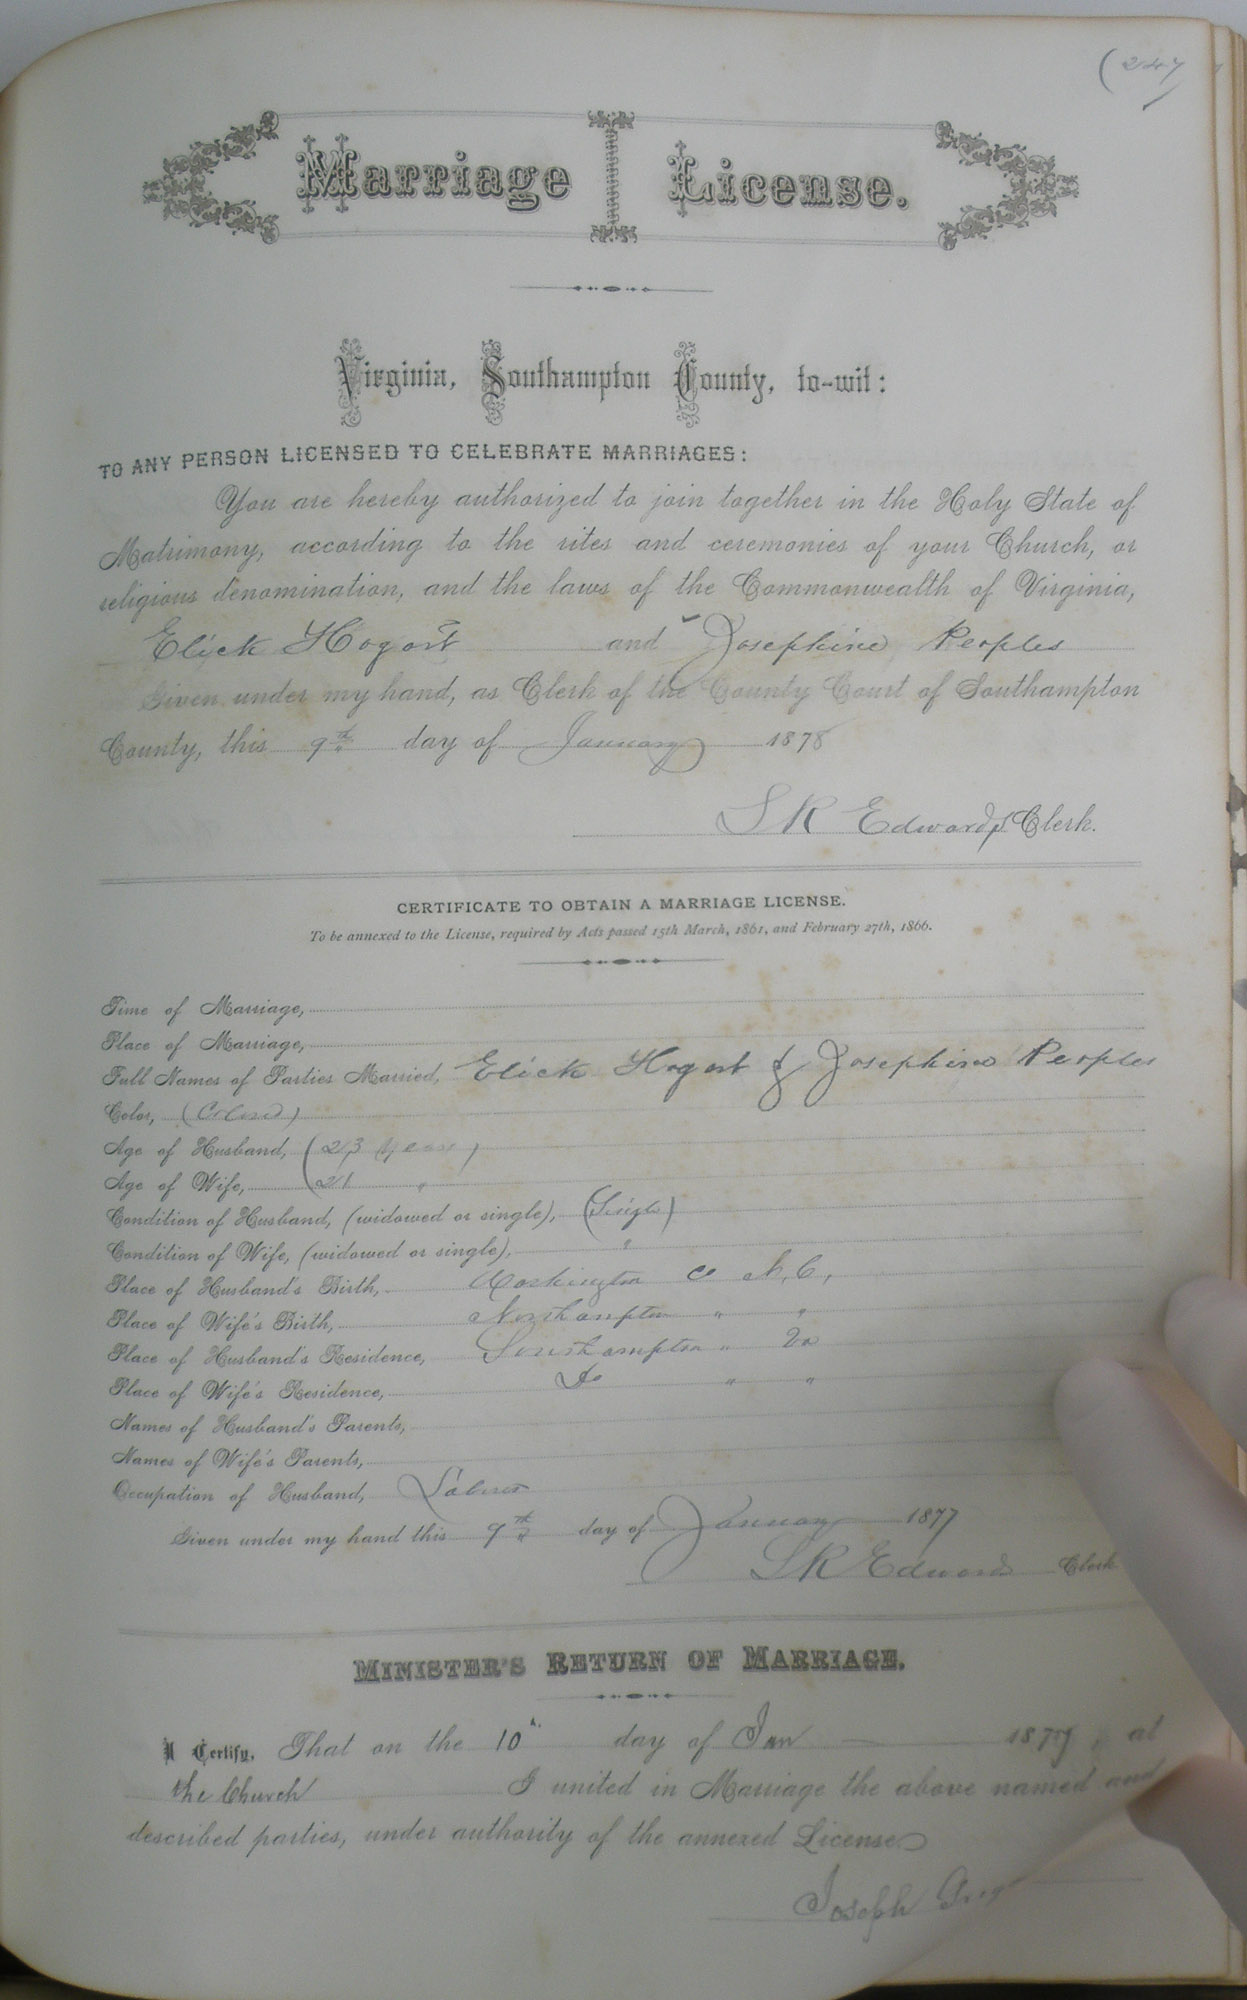 (247
Marriage License.
Virginia, Southampton County, to-wit:
TO ANY PERSON LICENSED TO CELEBRATE MARRIAGES:
You are hereby authorized to join together in the Holy State of
Matrimony, according to the rites and ceremonies of your Church, or
religious denomination, and the laws of the Commonwealth of Virginia,
Elick Hogart and Josephine Peoples
Given under my hand, as Clerk of the County Court of Southampton
County, this 9th day of January 1878
S R Edwards Clerk.
CERTIFICATE TO OBTAIN A MARRIAGE LICENSE.
To be annexed to the License, required by Acts passed 15th March, 1861, and February 27th, 1866.
Time of Marriage,
Place of Marriage,
Full Names of Parties Married, Elick Hogart & Josephine Peoples
Color, (Colored)
Age of Husband, (23 years)
Age of Wife, (21 "
Condition of Husband, (widowed or single), (Single)
Condition of Wife, (widowed or single), "
Place of Husband's Birth, Washington Co N.C.,
Place of Wife's Birth, Northampton " "
Place of Husband's Residence, Southampton " Va
Place of Wife's Residence, Do " "
Names of Husband's Parents,
Names of Wife's Parents,
Occupation of Husband, Laborer
Given under my hand this 9th day of January 1877
S R Edwards Clerk
MINISTER'S RETURN OF MARRIAGE.
I Certify, That on the 10th day of Jan 1877, at
the Church I united in Marriage the above named and
described parties, under authority of the annexed License.
Joseph